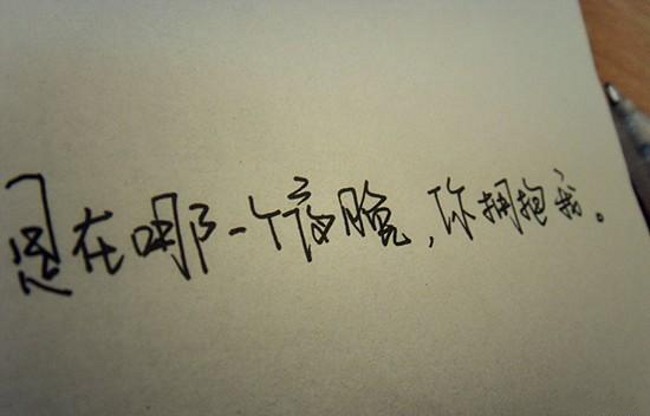 是在哪一个夜晚，你拥抱我。